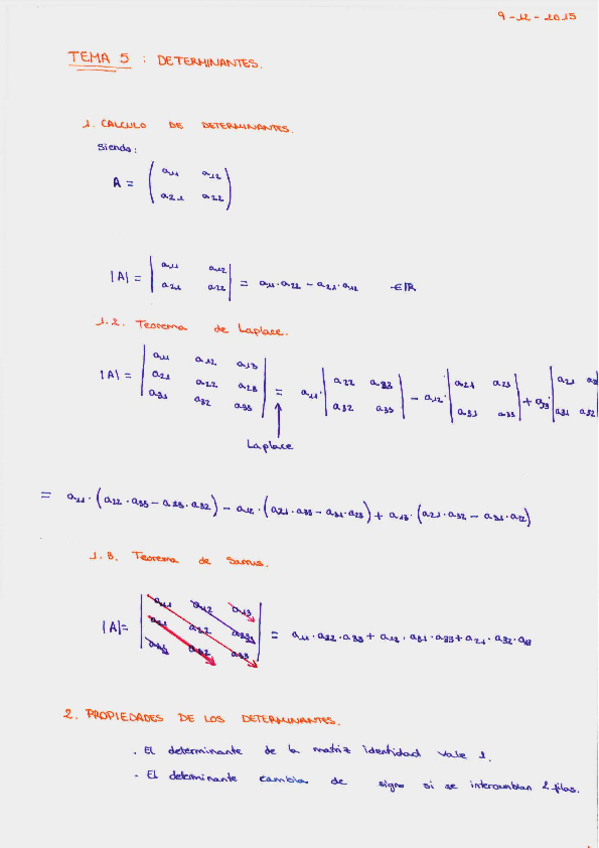 9-12-2015
TEMA 5 : DETERMINANTES.
1. CALCULO DE DETERMINANTES.
Siendo:
A = ( a11 a12
a21 a22 )
|A| = | a11 a12
a21 a22 | = a11·a22 - a21·a12 ∈ IR
1.2. Teorema de Laplace.
|A| = | a11 a12 a13
a21 a22 a23
a31 a32 a33 | = a11· | a22 a23
a32 a33 | - a12· | a21 a23
a31 a33 | + a13· | a21
a31 a32
Laplace
= a11·(a22·a33 - a23·a32) - a12·(a21·a33 - a31·a23) + a13·(a21·a32 - a31·a22)
1.3. Teorema de Sarrus.
|A| = | a11 a12 a13
a21 a22 a23
a31 a32 a33 | = a11·a22·a33 + a12·a31·a23 + a21·a32·a13
2. PROPIEDADES DE LOS DETERMINANTES.
. El determinante de la matriz identidad vale 1.
- El determinante cambia de signo si se intercambian 2 filas.